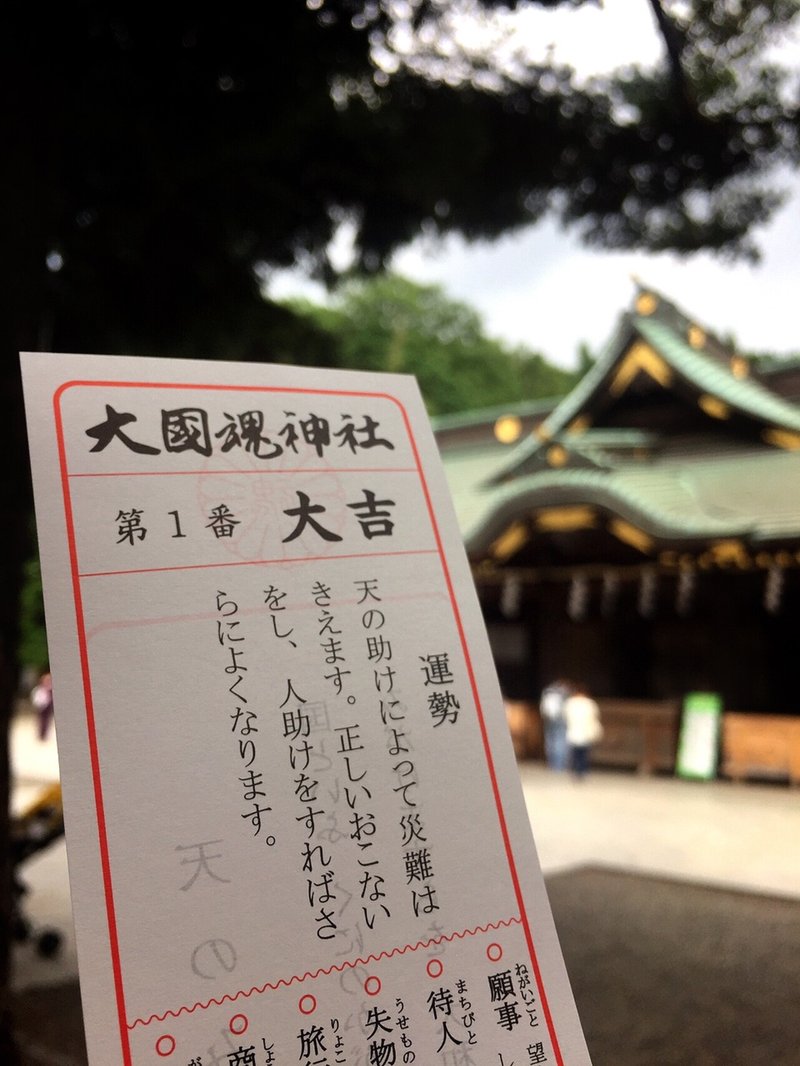 大國魂神社
第1番 大吉
運勢
天の助けによって災難は
きえます。正しいおこない
をし、人助けをすればさ
らによくなります。
ねがいごと
願事
望
まちびと
待人
うせもの
失物
りょこ
旅行
しょ
商